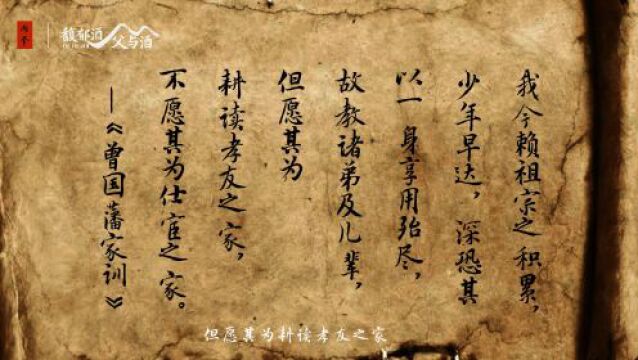 馥郁酒
父与酒
我今赖祖宗之积累，
少年早达，深恐其
以一身享用殆尽，
故教诸弟及儿辈，
但愿其为
耕读孝友之家，
不愿其为仕宦之家。
—《曾国藩家训》
但愿其为耕读孝友之家